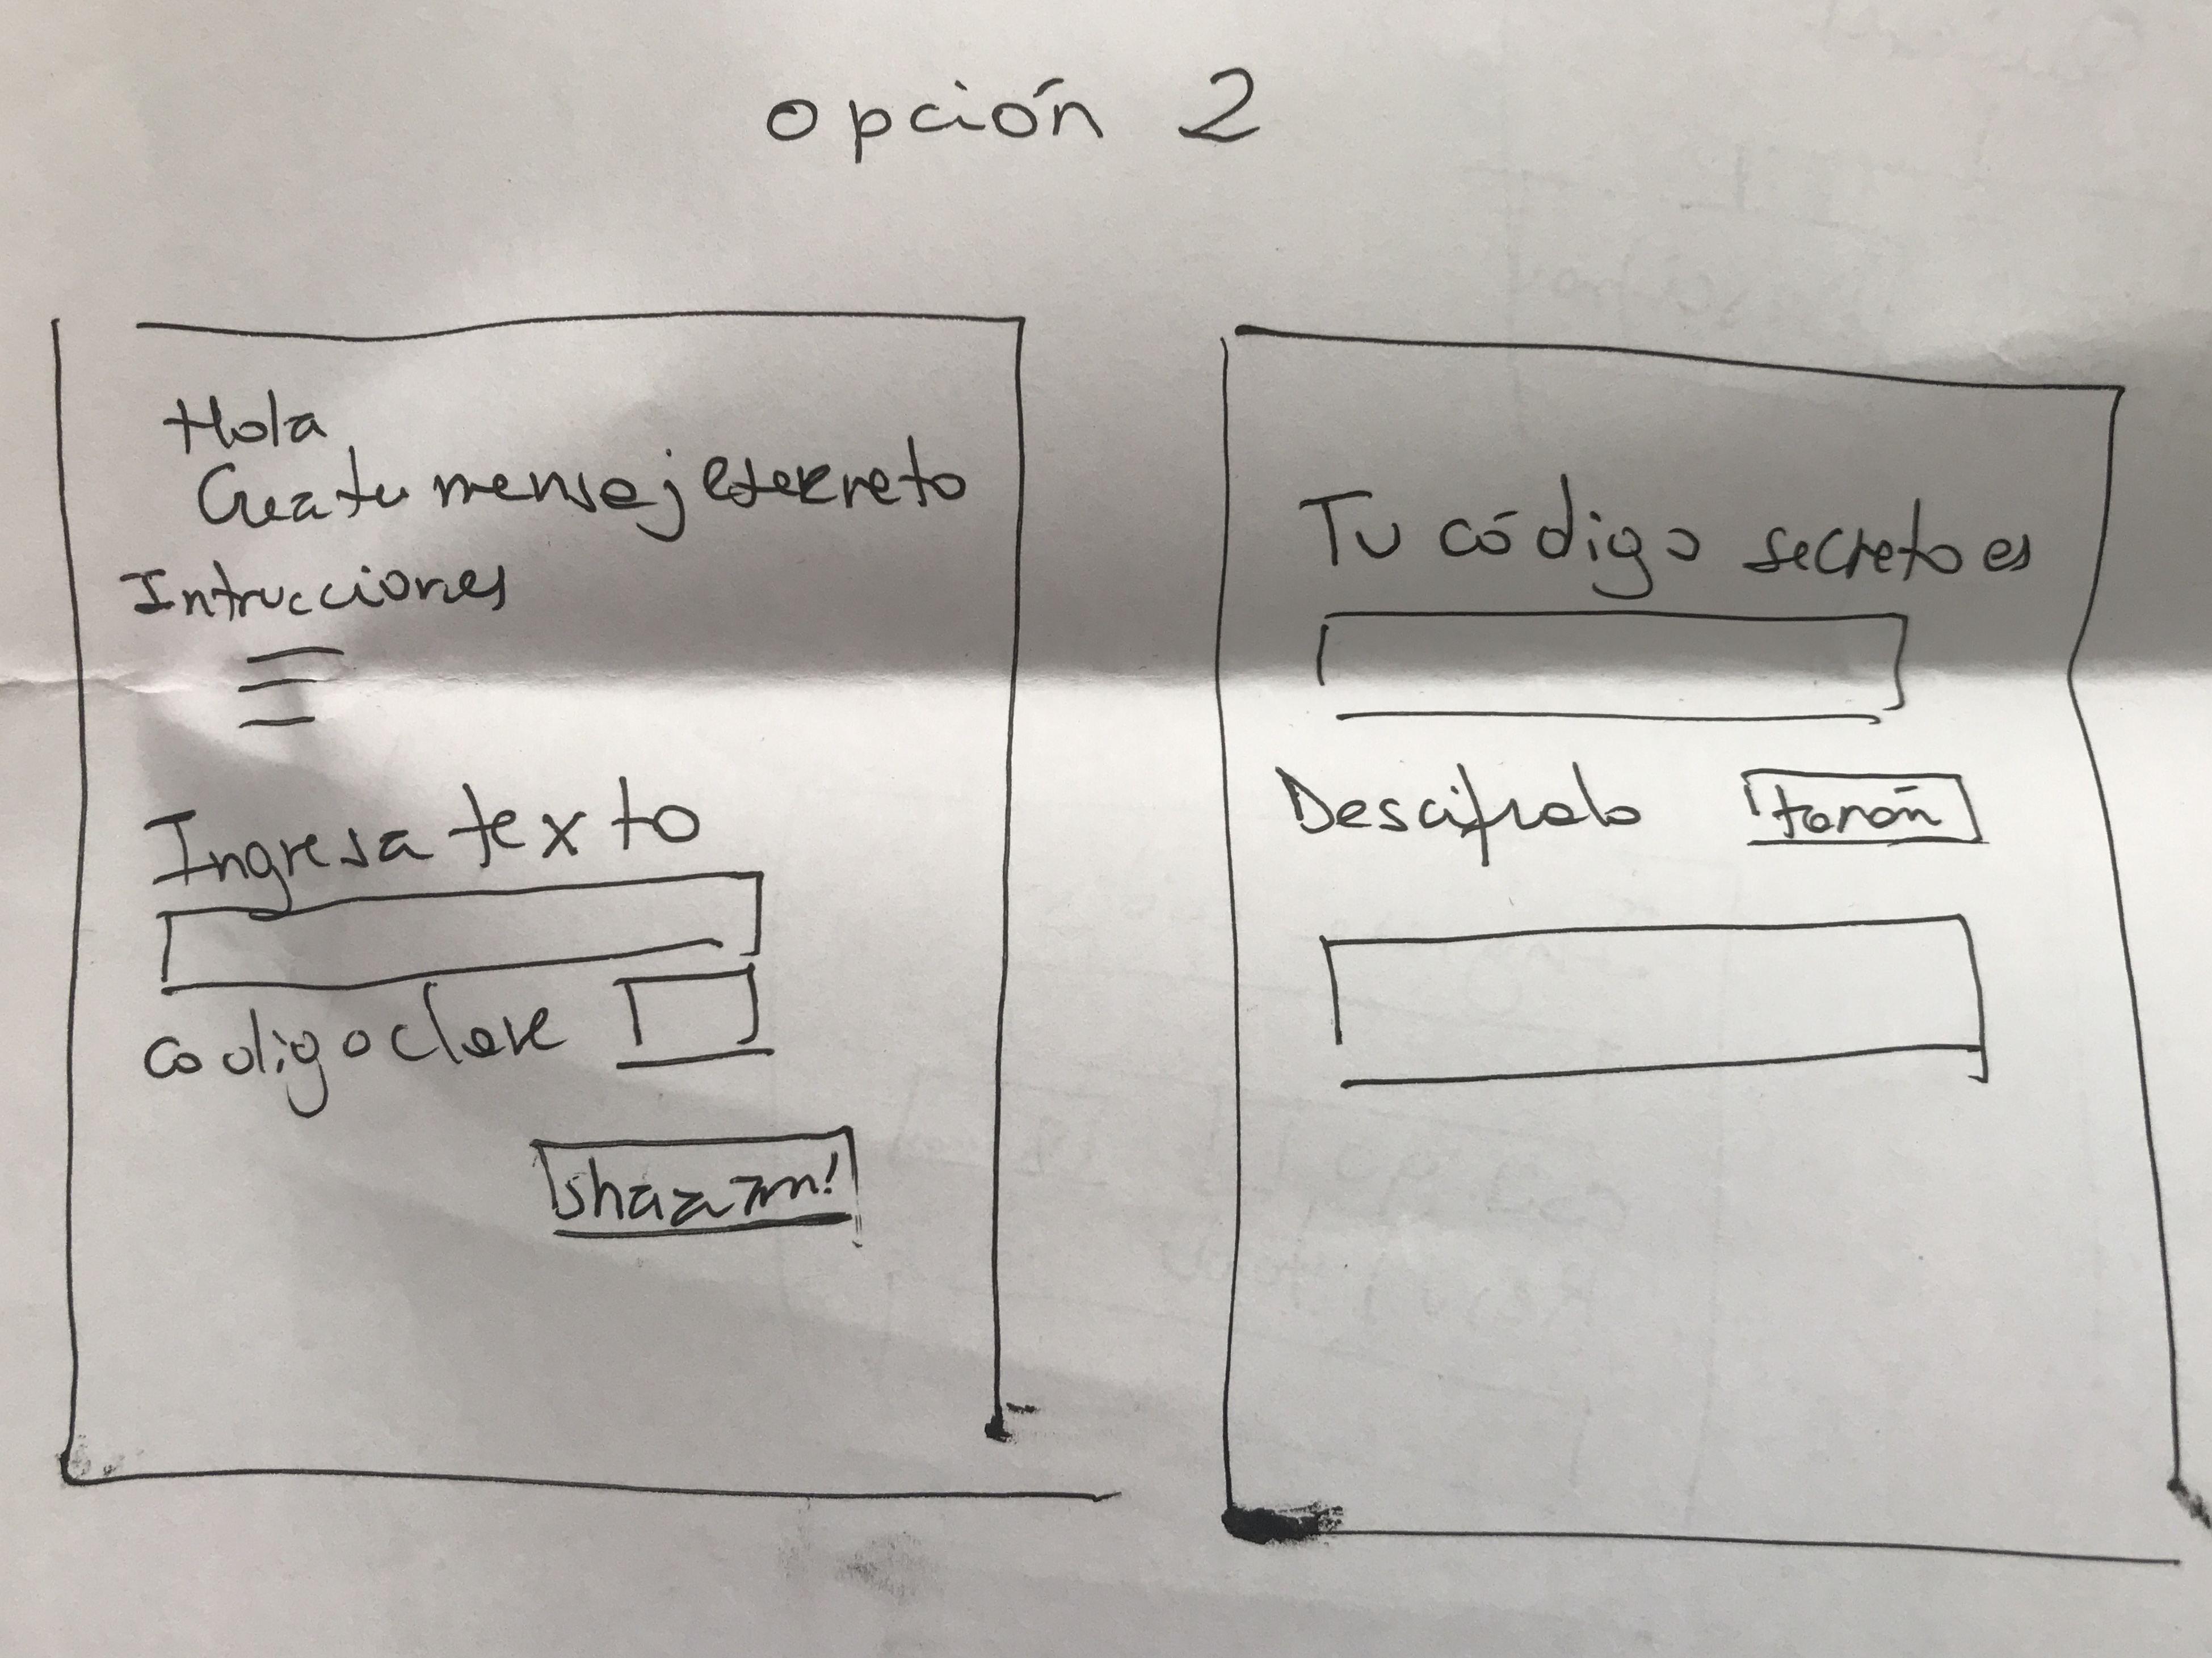 opción 2
Hola
Crea tu mensaje secreto
Intrucciones
Ingresa texto
codigo clave
shazam!
Tu código secreto es
Descifralo